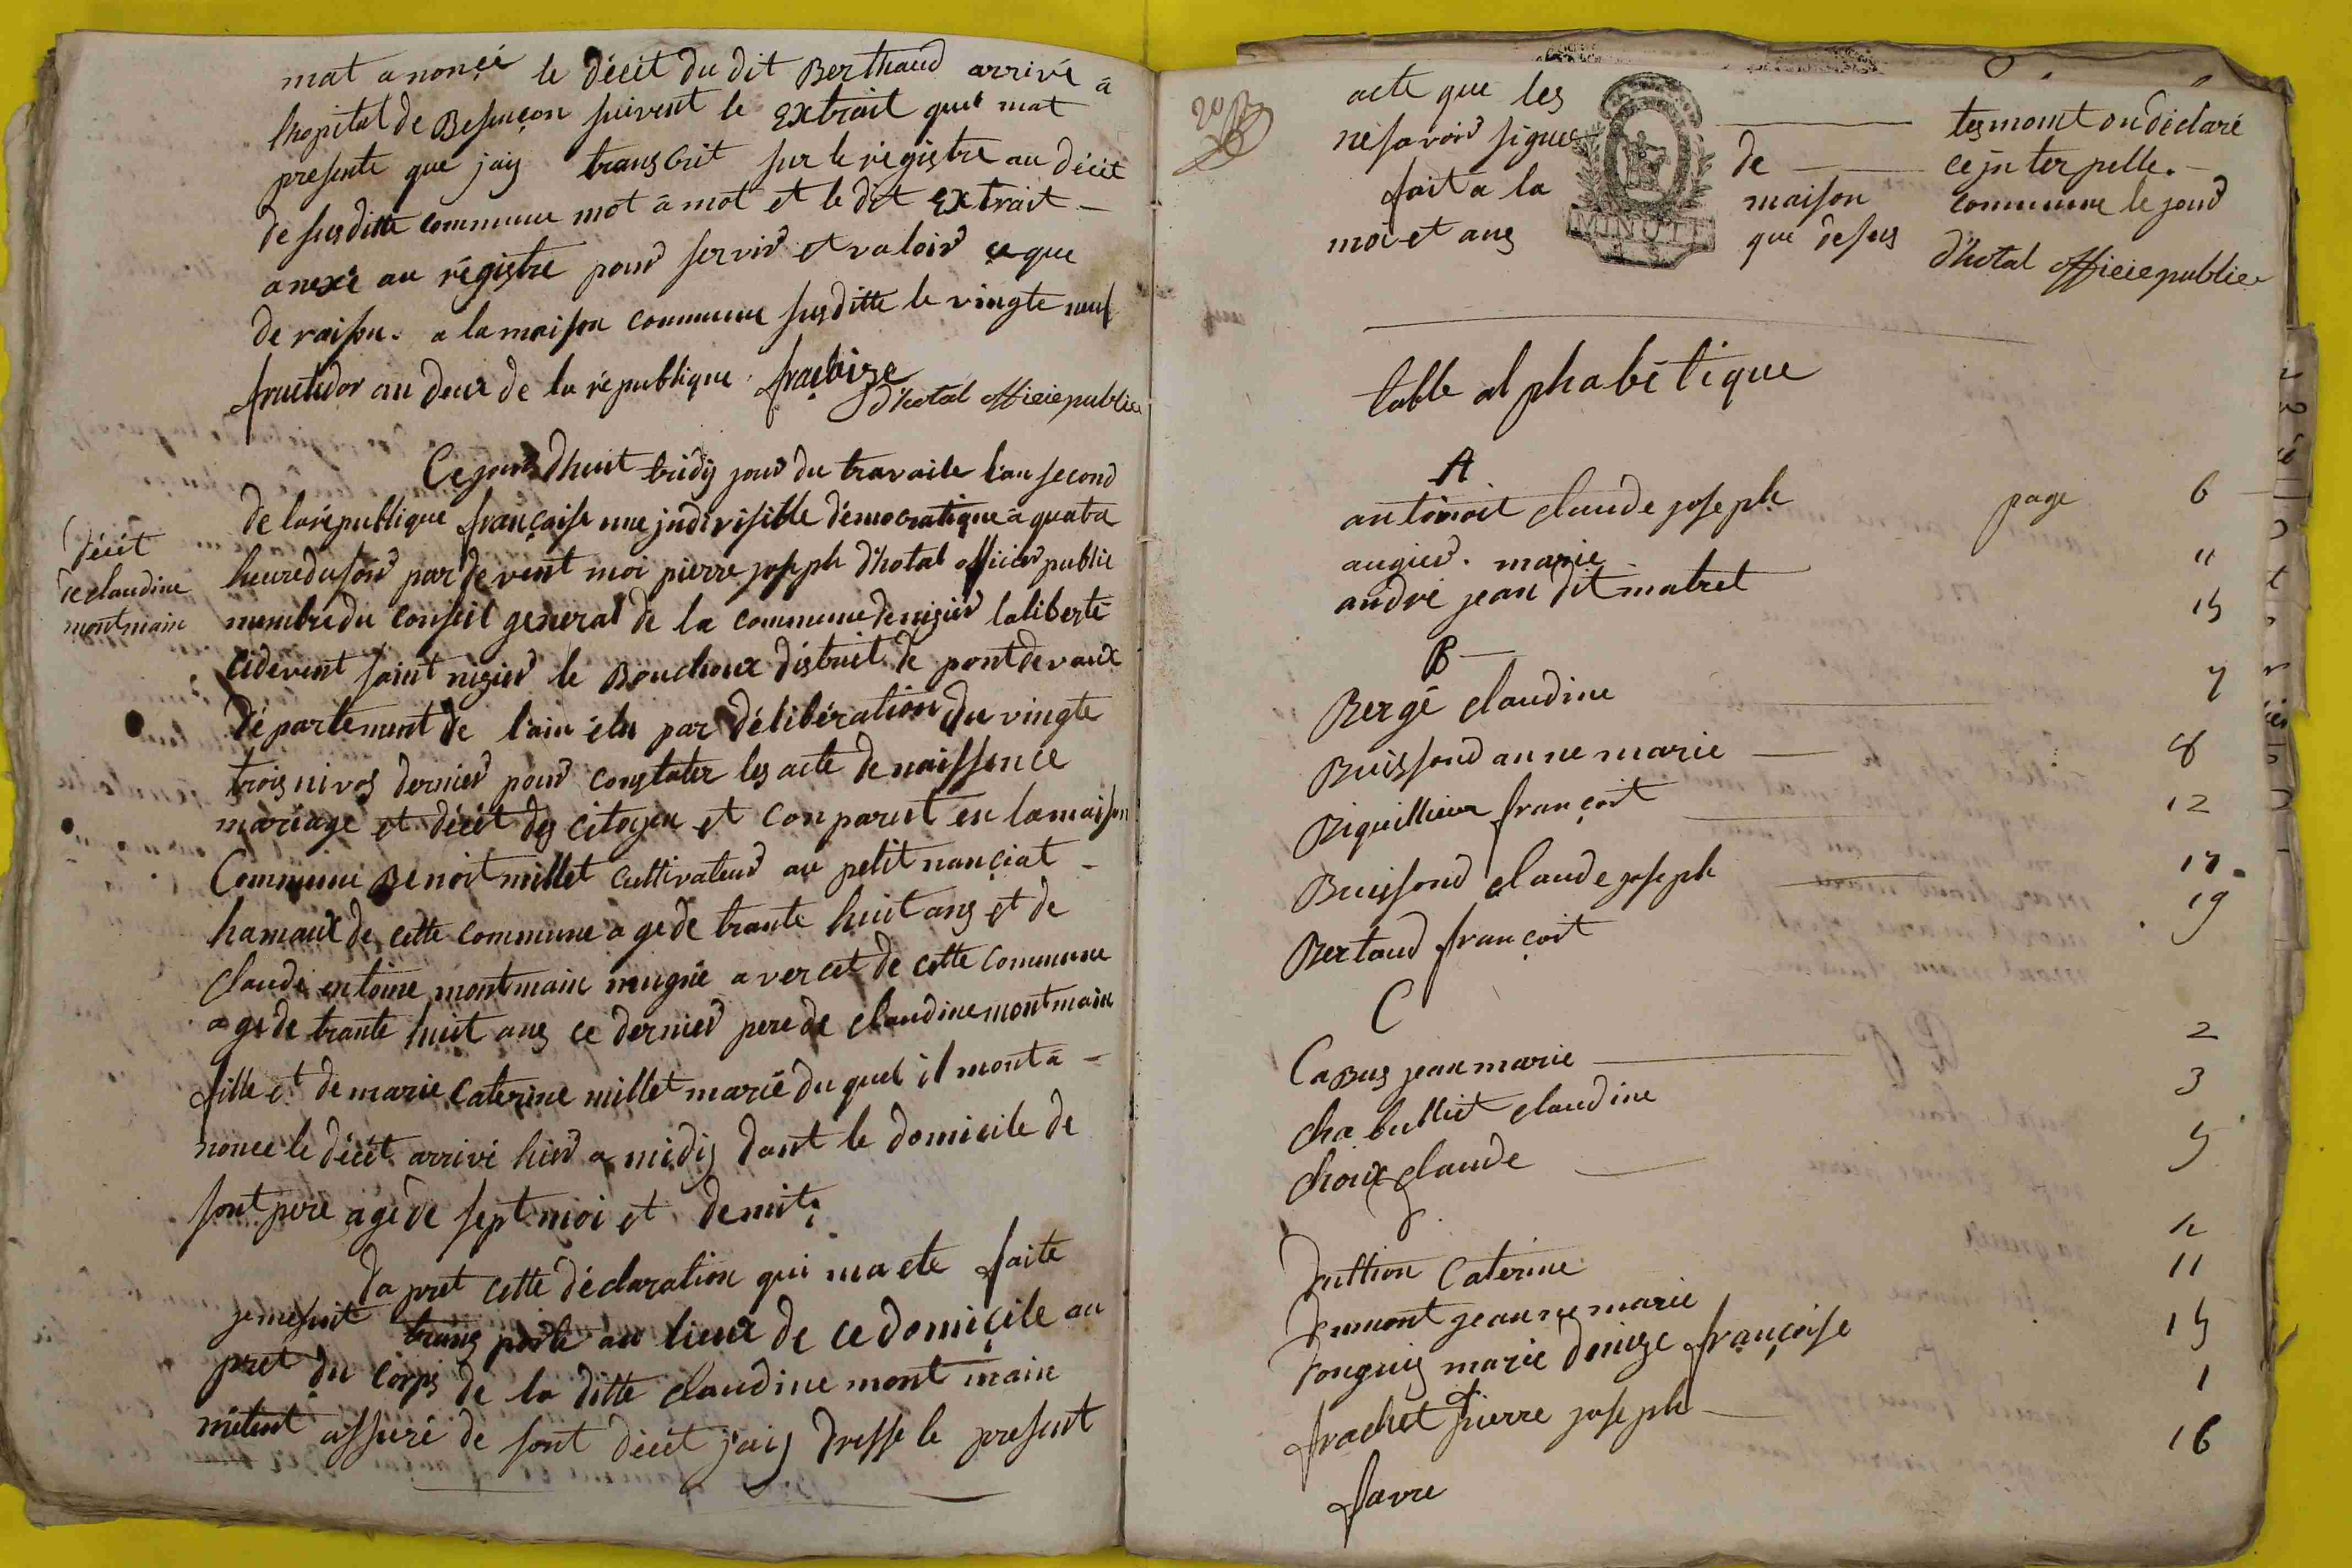 mat anoncé le décét du dit Berthaud arrivé à
lhopital de Besançon suivent le Extrait quel mat
presenté que jais transcrit sur le régistre au décét
de susditte commune mot à mot et le dit Extrait
anexé au régistre pour servir et valoir ce que
de raison. a la maison commune susditte le vingte neuf
fructidor an deux de la république francaize
D'hotal officiepublic
Cejourdhuit tridis jour du travaile l'an second
de larépublique française une jndivisible démocratique à quatre
heuredusoir pardevent moi pierre joseph D'hotal officier public
décét
de claudine
montmain
membredu conseil general de la commune denizier laliberté
cidevent saint nizier le Bouchoux district de pontdevaux
département de l'ain élu par délibération du vingte
trois nivos dernier pour constater les acte denaissence
mariage et décét des citoyen et conparut en lamaison
Commune Benoit millet cultivateur au petit nanciat
hamaux de cette commune agede trante huit ans et de
claude entoine montmain mugnié a vercet de cette commune
agede trante huit ans ce dernier pere de claudine montmain
fille et de marie Caterine millet marié du quel il mont a
noncé le décét arrivé hier a midis dant le domicile de
sont pere agé de sept moi et demit
Da pret cette déclaration qui ma ete faite
jemesuit trans porté au lieux de ce domicile au
pret du corps de la ditte claudine mont main
métent assuré de sont décét jais dressé le present
20
acte que les tesmoint on déclaré
ne savoir signer de ce jnterpellé.
fait a la maison commune le jour
moi et ans que desus D'hotal officiepublic
MINUTE
table alphabétique
A
antoinoit claude joseph page 6
augier. marie 11
andré jean dit matret 15
B
Bergé claudine 7
Buissond anne marie 8
Biguillieur françoit 12
Buissond claude joseph 17
Bertaud françoit 19
C
Cabus jean marie 2
chabulliet claudine 3
choux claude 5
D
Duttion Caterine
Dumont jeanne marie 11
Donguis marie denize françoise 15
frachet pierre joseph 1
favre 16